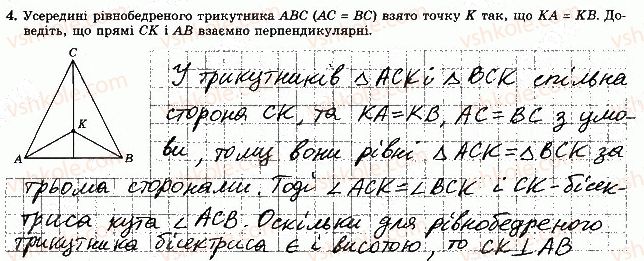 4. Усередині рівнобедреного трикутника ABC (AC = BC) взято точку K так, що KA = KB. До-
ведіть, що прямі CK і AB взаємно перпендикулярні.
C
K
A B
У трикутників △ACK і △BCK спільна
сторона CK, та KA=KB, AC=BC з умо-
ви, тому вони рівні △ACK=△BCK за
трьома сторонами. Тоді ∠ACK=∠BCK і CK-бісек-
триса кута ∠ACB. Оскільки для рівнобедреного
трикутника бісектриса є і висотою, то CK⊥AB